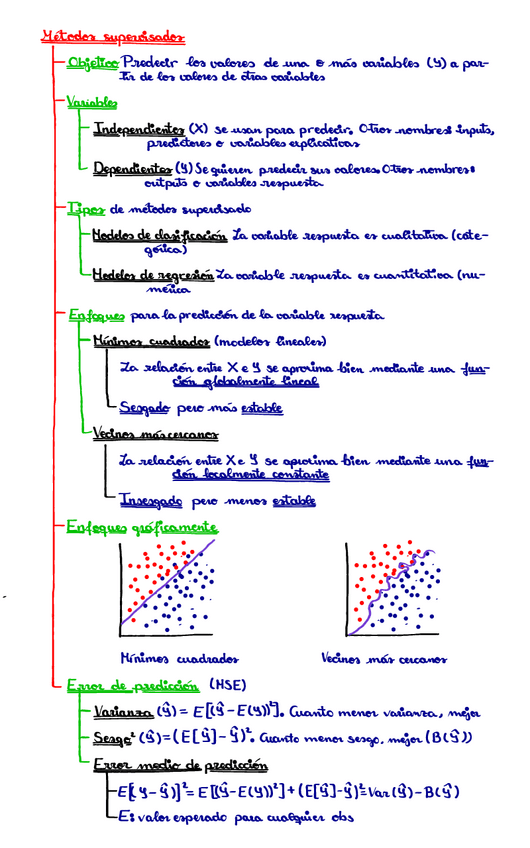 Métodos supervisados
Objetivo Predecir los valores de una o más variables (Y) a par-
tir de los valores de otras variables
Variables
Independientes (X) se usan para predecir. Otros nombres: inputs,
predictores o variables explicativas
Dependientes (Y) Se quieren predecir sus valores. Otros nombres:
outputs o variables respuesta
Tipos de métodos supervisado
Modelos de clasificación La variable respuesta es cualitativa (cate-
górica)
Modelos de regresión La variable respuesta es cuantitativa (nu-
mérica
Enfoques para la predicción de la variable respuesta
Mínimos cuadrados (modelos lineales)
La relación entre X e Y se aproxima bien mediante una fun-
ción globalmente lineal
Sesgado pero más estable
Vecinos más cercanos
La relación entre X e Y se aproxima bien mediante una fun-
ción localmente constante
Insesgado pero menos estable
Enfoques gráficamente
Mínimos cuadrados Vecinos más cercanos
Error de predicción (MSE)
Varianza (Ŷ) = E[(Ŷ-E(Y))²]. Cuanto menor varianza, mejor
Sesgo² (Ŷ) = (E[Ŷ]-Ŷ)². Cuanto menor sesgo, mejor (B(Ŷ))
Error medio de predicción
E[(Y-Ŷ)]² = E[(Ŷ-E(Y))²] + (E[Ŷ]-Ŷ)² = Var(Ŷ) - B(Ŷ)
E: valor esperado para cualquier obs